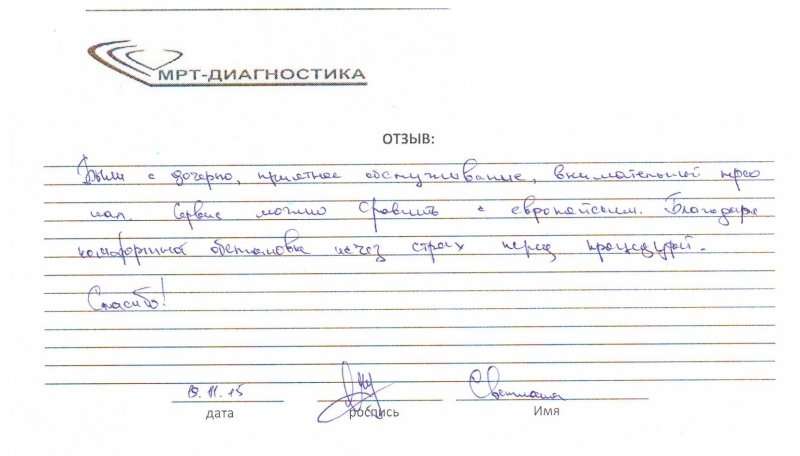 МРТ-ДИАГНОСТИКА
ОТЗЫВ:
Были с дочерью, приятное обслуживание, внимательный персо
нал. Сервис можно сравнить с европейским. Благодаря
комфортной обстановке исчез страх перед процедурой.
Спасибо!
19.11.15 Светлана
дата роспись Имя